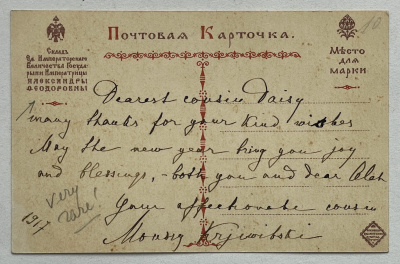 Почтовая Карточка.
Складъ
Ея Императорскаго
Величества Госуда-
рыни Императрицы
Александры
Ѳеодоровны
Мѣсто
для
марки
10
Dearest cousin Daisy
many thanks for your kind wishes
May the new year bring you joy
and blessings, - both you and dear
Your affectionate cousin
very
rare!
1917